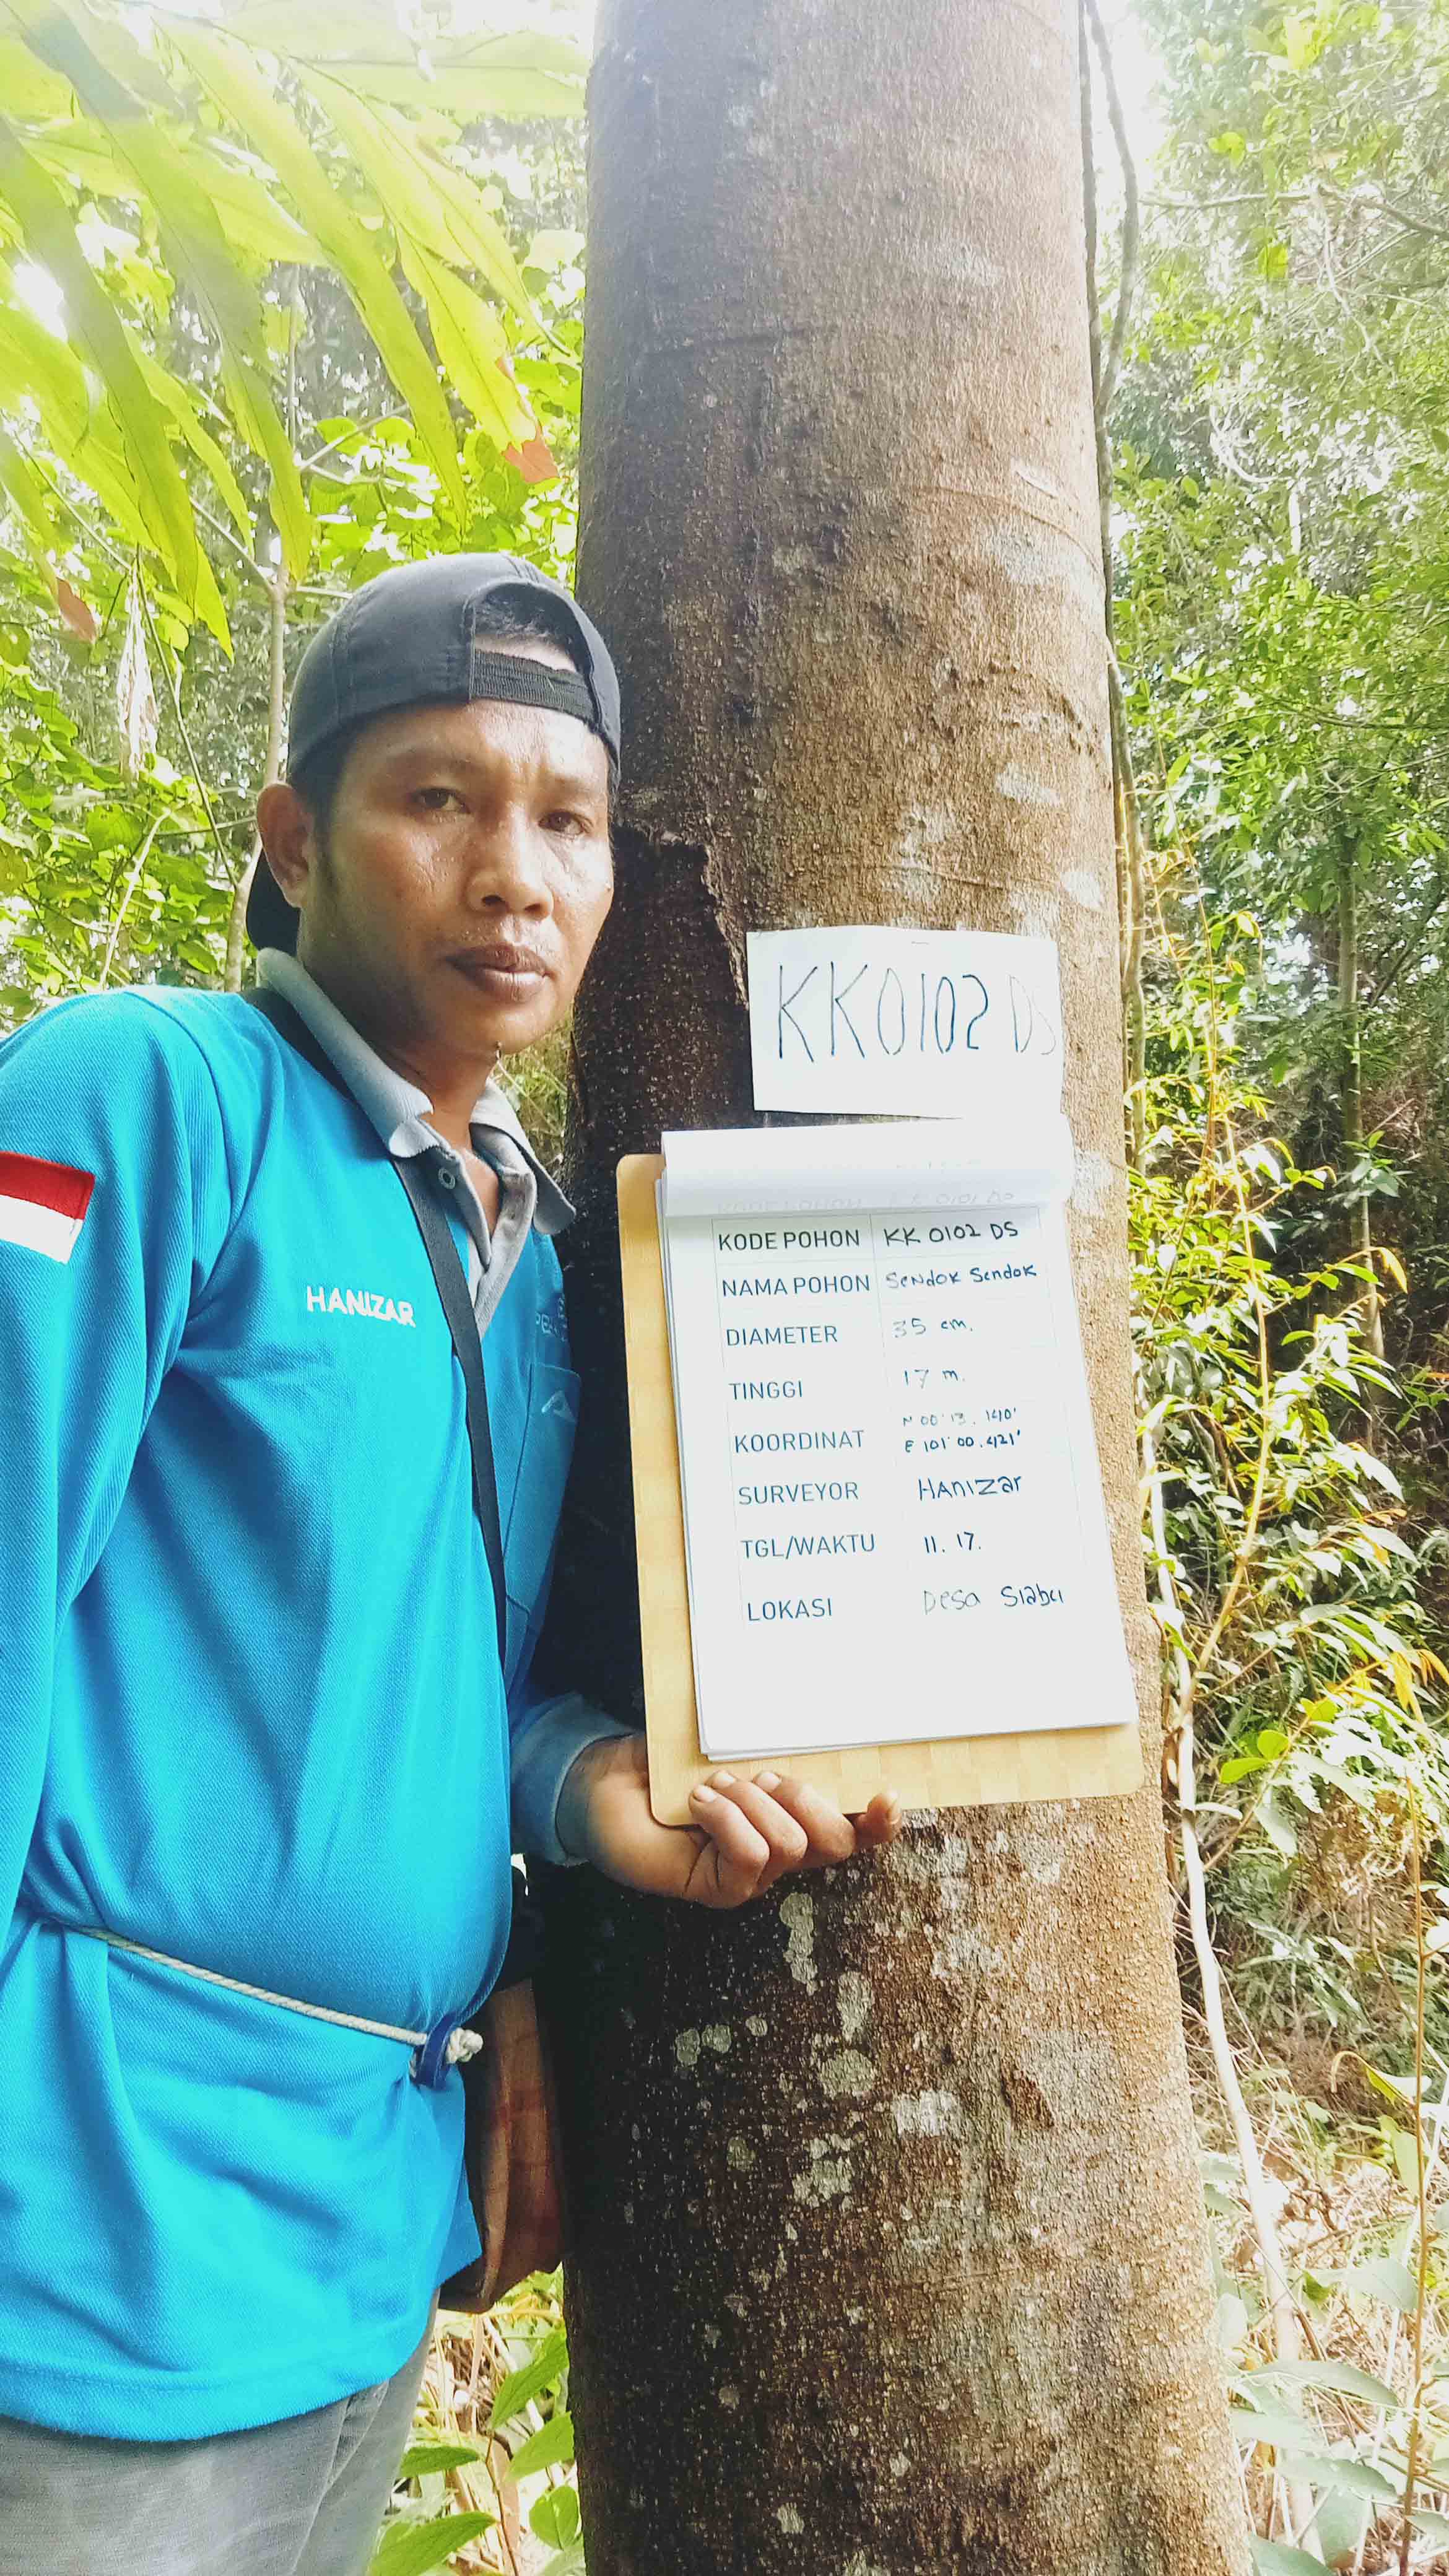 KK0102 DS
HANIZAR
KODE POHON KK 0102 DS
NAMA POHON Sendok Sendok
DIAMETER 35 cm.
TINGGI 17 m.
KOORDINAT N 00° 13. 140'
E 101° 00. 421'
SURVEYOR HAnIZar
TGL/WAKTU 11. 17.
LOKASI Desa Siabu